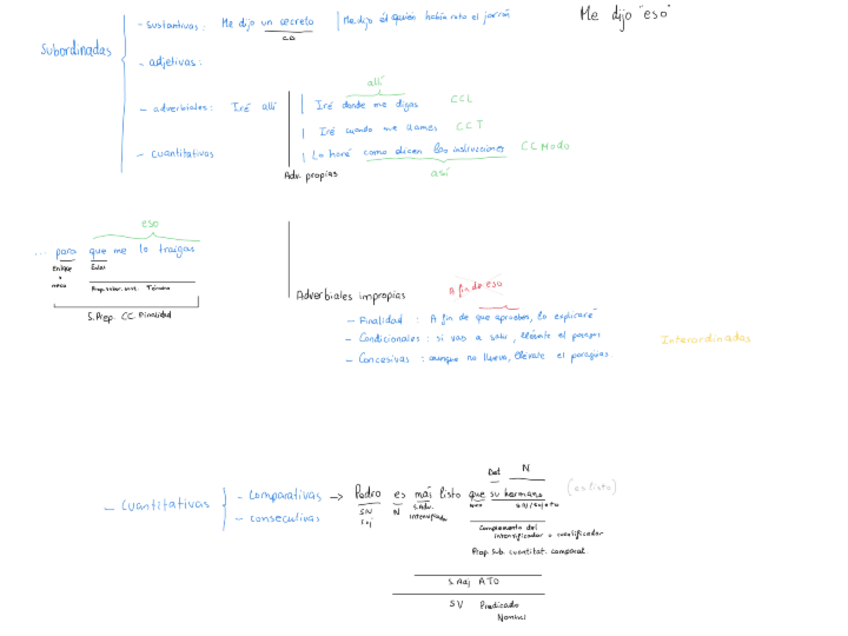 Me dijo "eso"
Subordinadas
- sustantivas: Me dijo un secreto
CD
Me dijo él quién había roto el jarrón
- adjetivas:
- adverbiales: Iré allí
allí
Iré donde me digas CCL
Iré cuando me llames CCT
- cuantitativas
Lo haré como dicen las instrucciones CC Modo
así
Adv. propias
eso
... para que me lo traigas
Enlace
Enlace
nexo
Prop. subor. sust. Término
S. Prep. CC Finalidad
Adverbiales impropias
A fin de eso
- Finalidad: A fin de que aprobéis, lo explicaré
- Condicionales: si vas a salir, llévate el paraguas
- Concesivas: aunque no llueva, llévate el paraguas.
Interordinadas
- Cuantitativas
- Comparativas → Pedro es más listo que su hermano (es listo)
- consecutivas
Det N
SN
Suj
N
S. Adv.
Intensificador
nexo
SN/Sujeto
Complemento del
intensificador o cuantificador
Prop. Sub. cuantitat. comparat.
S. Adj ATO
SV Predicado
Nominal